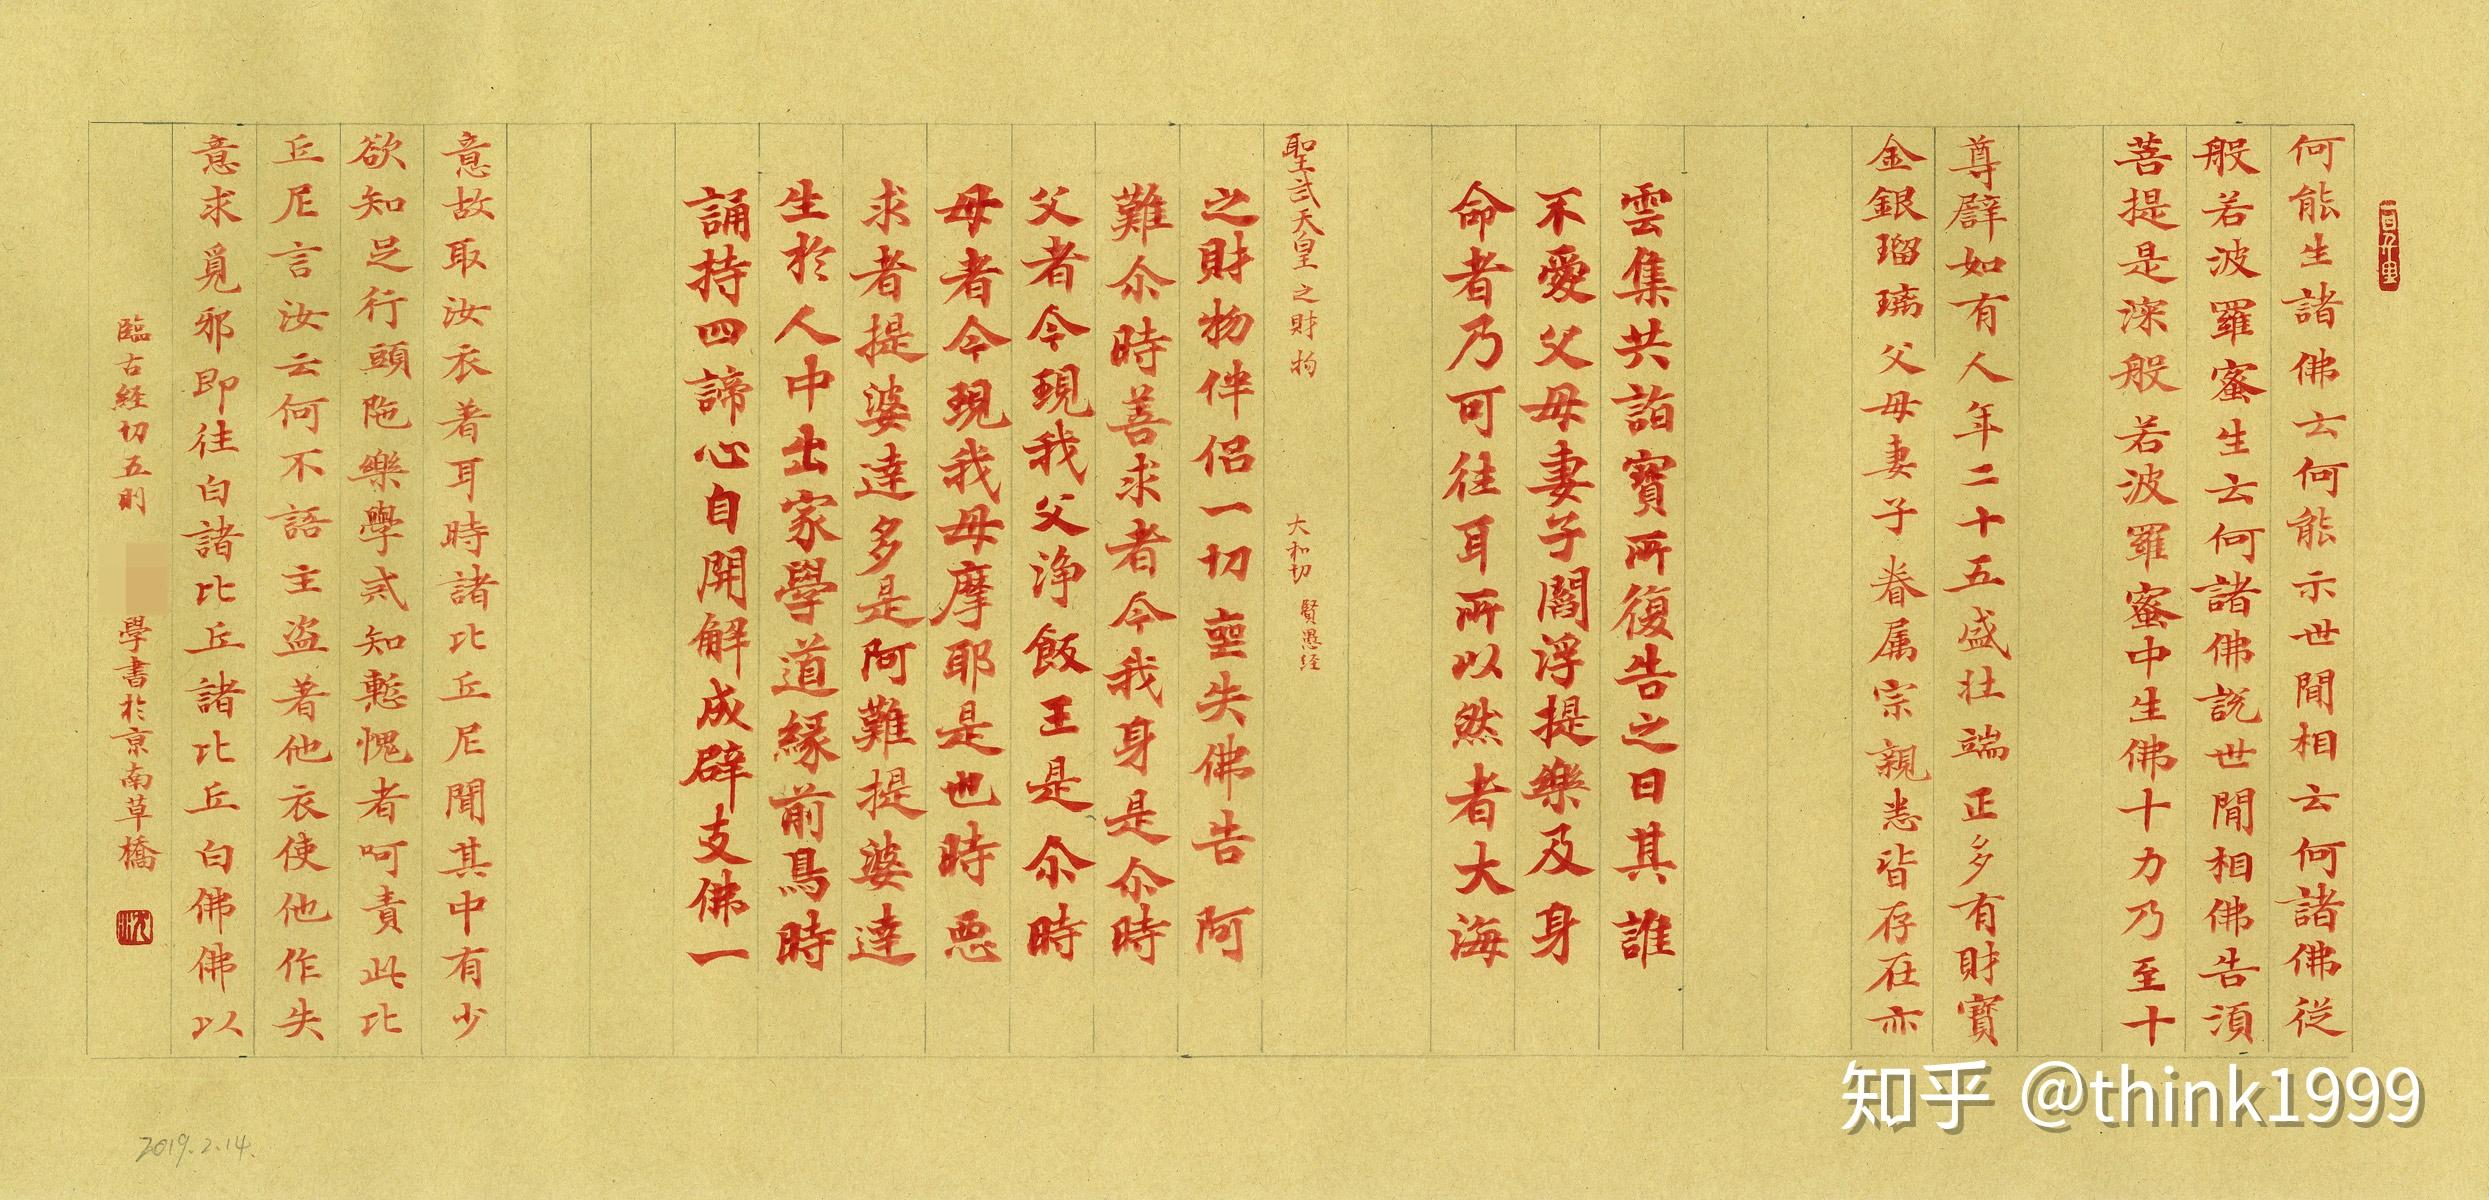 何能生諸佛云何能示世間相云何諸佛從
般若波羅蜜生云何諸佛說世間相佛告須
菩提是深般若波羅蜜中生佛十力乃至十
尊譬如有人年二十五盛壯端正多有財寶
金銀瑠璃父母妻子眷属宗親悉皆存在亦
雲集共詣寶所復告之曰其誰
不愛父母妻子閻浮提樂及身
命者乃可往耳所以然者大海
聖武天皇之財物
大和切 賢愚経
之財物伴侶一切空失佛告阿
難尒時善求者今我身是尒時
父者今現我父淨飯王是尒時
母者今現我母摩耶是也時惡
求者提婆達多是阿難提婆達
生於人中出家學道緣前鳥時
誦持四諦心自開解成辟支佛一
意故取汝衣著耳時諸比丘尼聞其中有少
欲知足行頭陁樂學戒知慙愧者呵責此比
丘尼言汝云何不語主盗著他衣使他作失
意求覓邪即往白諸比丘諸比丘白佛佛以
臨古経切五則
學書於京南草橋
2019.2.14.
知乎 @think1999